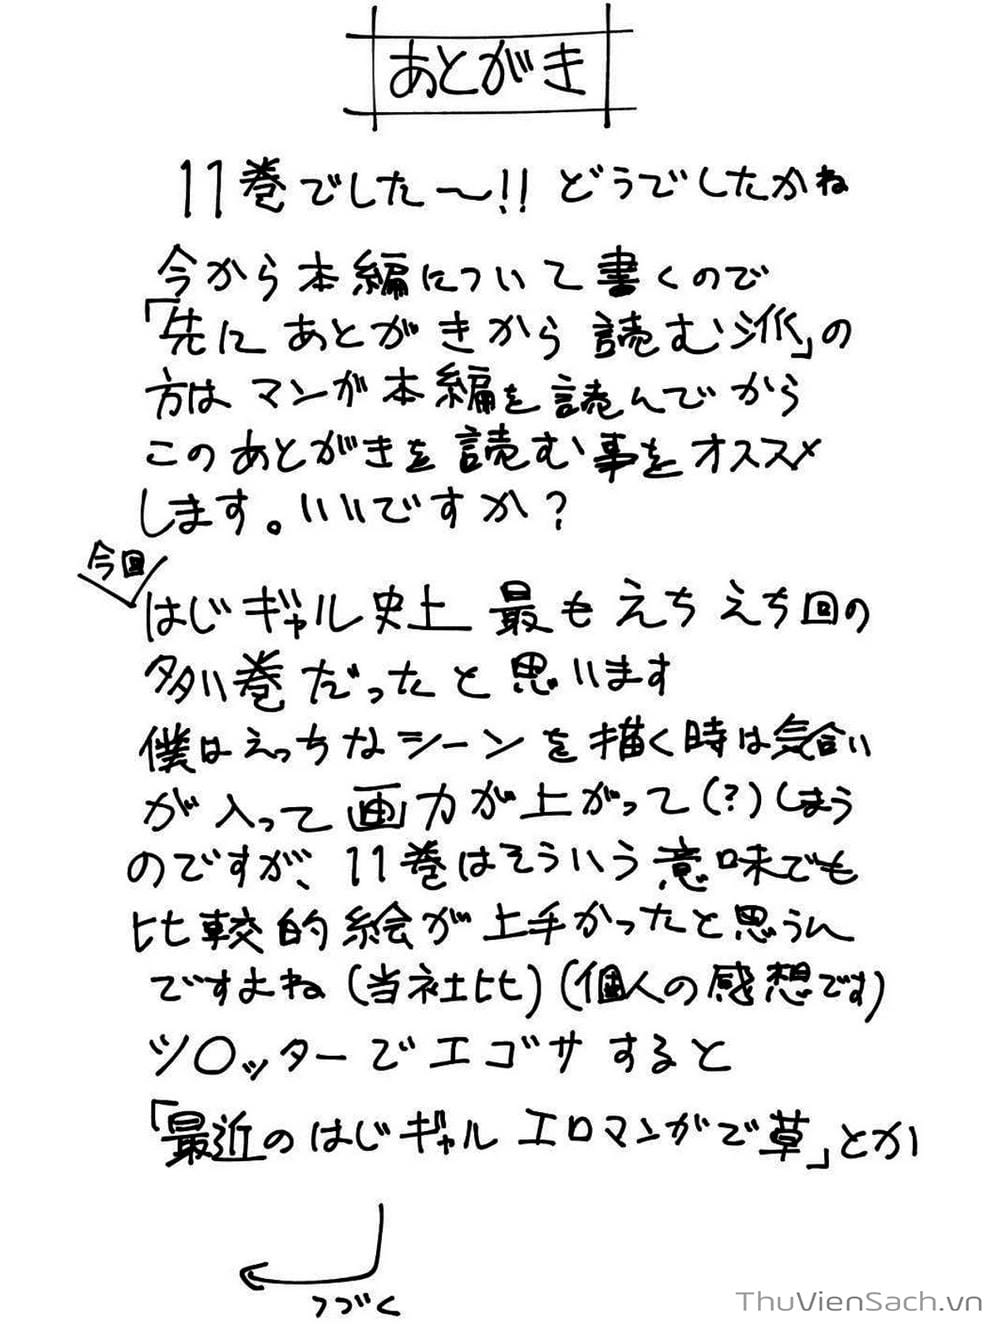 あとがき
11巻でした〜!! どうでしたかね
今から本編について書くので
「先にあとがきから読む派」の
方はマンガ本編を読んでから
このあとがきを読む事をオススメ
します。いいですか？
今回
はじギャル史上 最もえちえち回の
多い巻だったと思います
僕はえっちなシーンを描く時は気合い
が入って画力が上がって(?)しまう
のですが、11巻はそういう意味でも
比較的絵が上手かったと思うん
ですよね(当社比)(個人の感想です)
ツ〇ッターでエゴサすると
「最近のはじギャルエロマンガで草」とか
つづく
ThuVienSach.vn